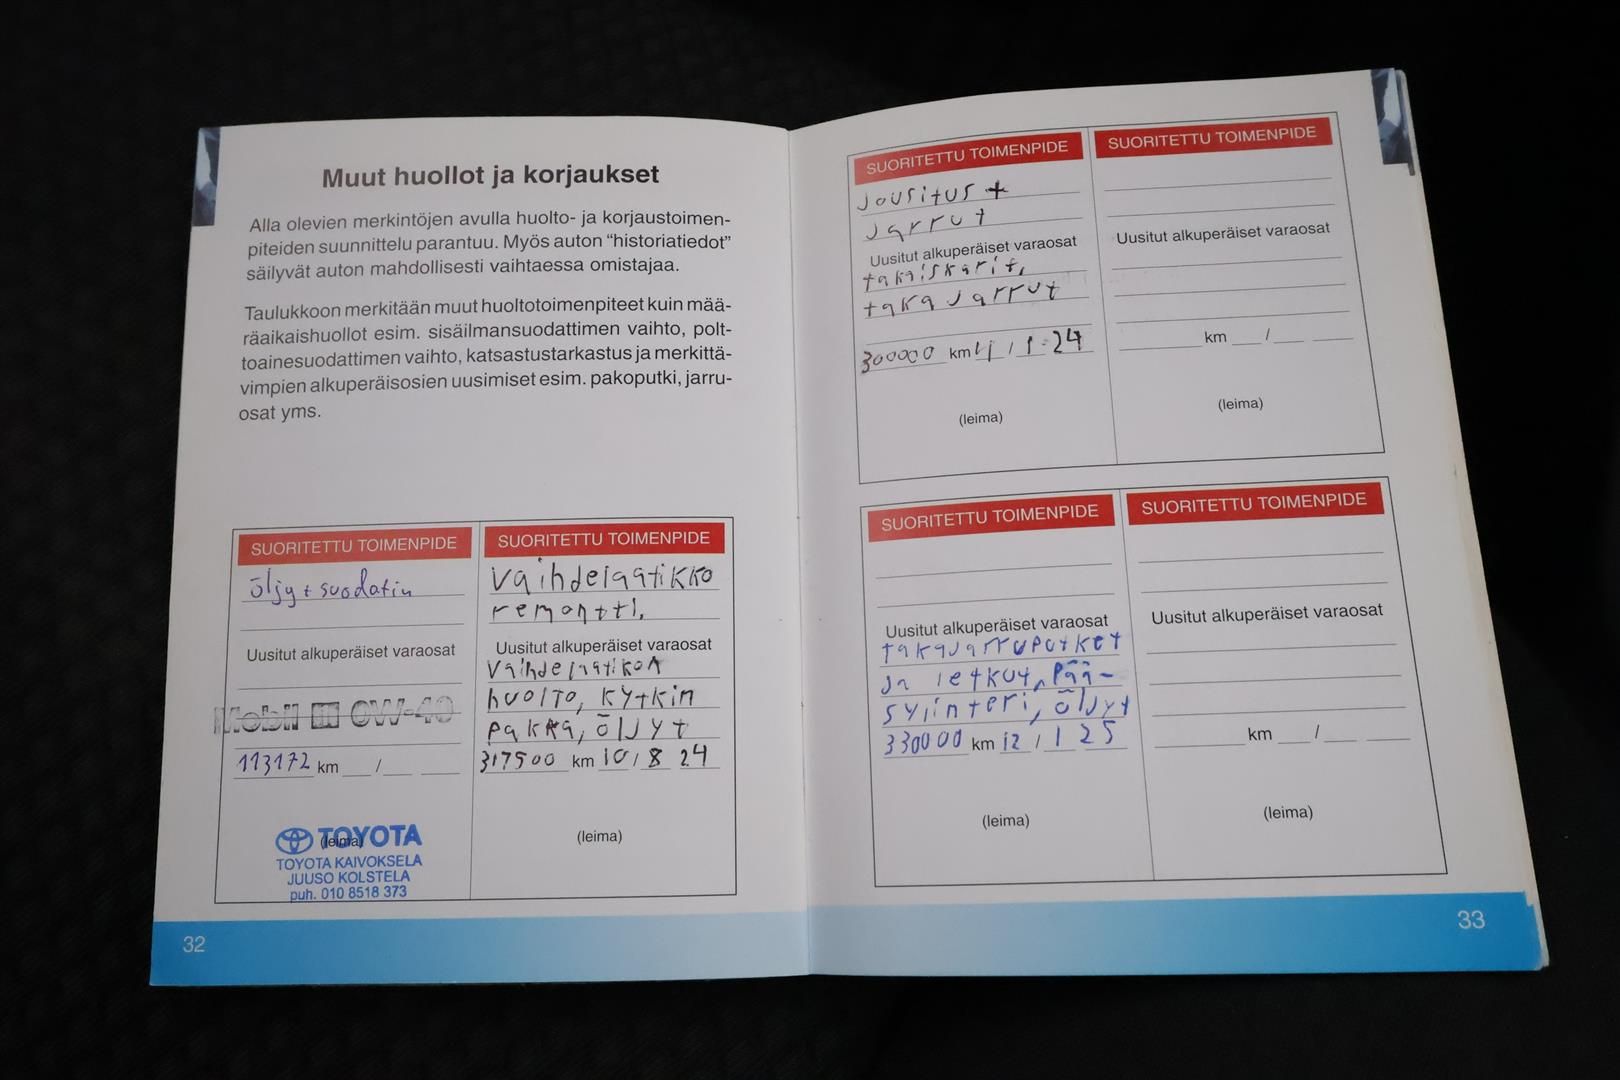 Muut huollot ja korjaukset
Alla olevien merkintöjen avulla huolto- ja korjaustoimen-
piteiden suunnittelu parantuu. Myös auton “historiatiedot”
säilyvät auton mahdollisesti vaihtaessa omistajaa.
Taulukkoon merkitään muut huoltotoimenpiteet kuin mää-
räaikaishuollot esim. sisäilmansuodattimen vaihto, polt-
toainesuodattimen vaihto, katsastustarkastus ja merkittä-
vimpien alkuperäisosien uusimiset esim. pakoputki, jarru-
osat yms.
SUORITETTU TOIMENPIDE
öljy + suodatin
Uusitut alkuperäiset varaosat
Mobil 1 0W-40
113172 km __/__ __
(leima)
TOYOTA
TOYOTA KAIVOKSELA
JUUSO KOLSTELA
puh. 010 8518 373
SUORITETTU TOIMENPIDE
Vaihdelaatikko
remontti.
Uusitut alkuperäiset varaosat
Vaihdelaatikon
huolto, kytkin
pakka, öljyt
317500 km 10/8 24
(leima)
32
SUORITETTU TOIMENPIDE
Jousitus +
Jarrut
Uusitut alkuperäiset varaosat
takaiskarit,
taka Jarrut
300000 km /1.24
(leima)
SUORITETTU TOIMENPIDE
Uusitut alkuperäiset varaosat
km __/__ __
(leima)
SUORITETTU TOIMENPIDE
Uusitut alkuperäiset varaosat
takaJarruputket
Ja letkut, Pää-
sylinteri, öljyt
330000 km 12/1 25
(leima)
SUORITETTU TOIMENPIDE
Uusitut alkuperäiset varaosat
km __/__ __
(leima)
33